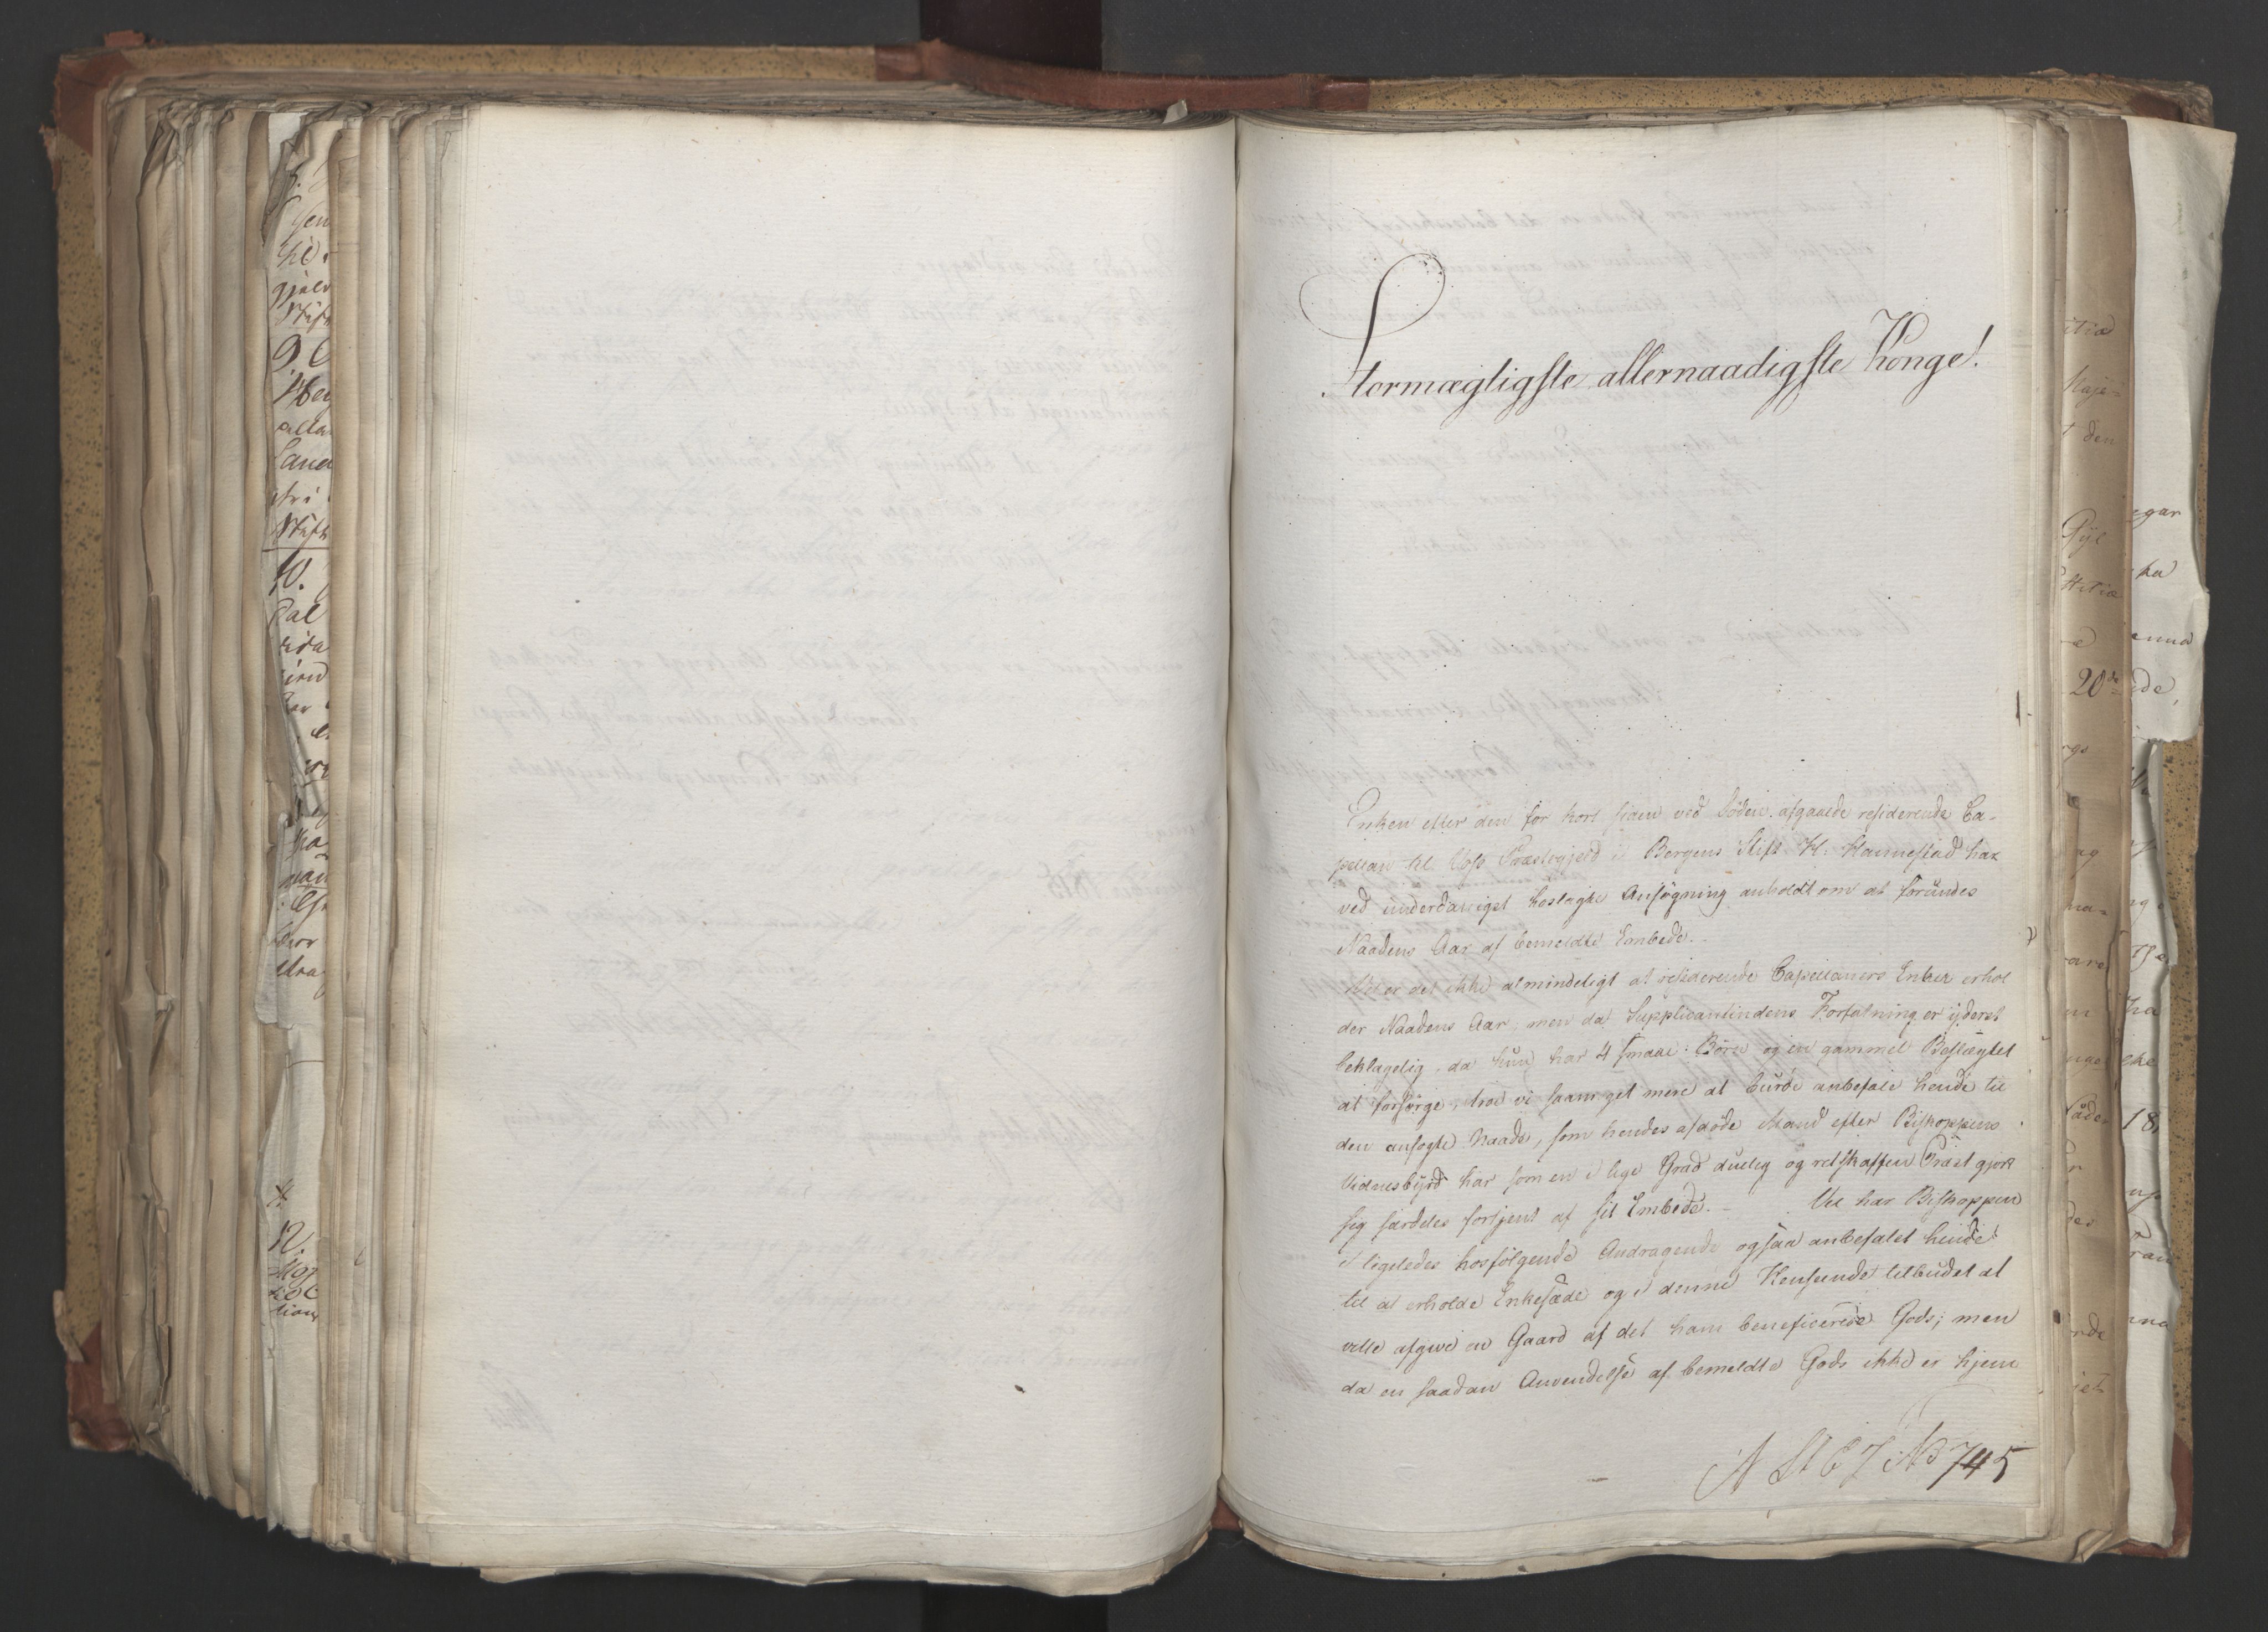 Stormægtigste allernaadigste Konge!
Enken efter den for kort siden ved Döden afgaaede residerende Ca-
pellan til Præstegjeld i Bergens Stift H. Hannestad har
ved underdanigst hoslagte Ansögning anholdt om at forundes
Naadens Aar af bemeldte Embede.
Vel er det ikke almindeligt at residerende Capellaners Enker erhol
der Naadens Aar, men da Supplicantindens Forfatning er yderst
beklagelig, da hun har 4 smaae Börn og en gammel Beslægtet
at forsörge, troe vi saameget mere at burde anbefale hende til
den ansögte Naade, som hendes afdöde Mand efter Biskoppens
Vidnesbyrd har som en i lige Grad duelig og retskaffen Præst gjort
sig særdeles fortjent af sit Embede. – Vel har Biskoppen
i ligeledes hosfölgende Andragende ogsaa anbefalet hende
til at erholde Enkesæde og i denne Henseende tilbudet at
ville afgive en Gaard af det ham beneficerede Gods; men
da en saadan Anvendelse af bemeldte Gods ikke er hjem
No 745